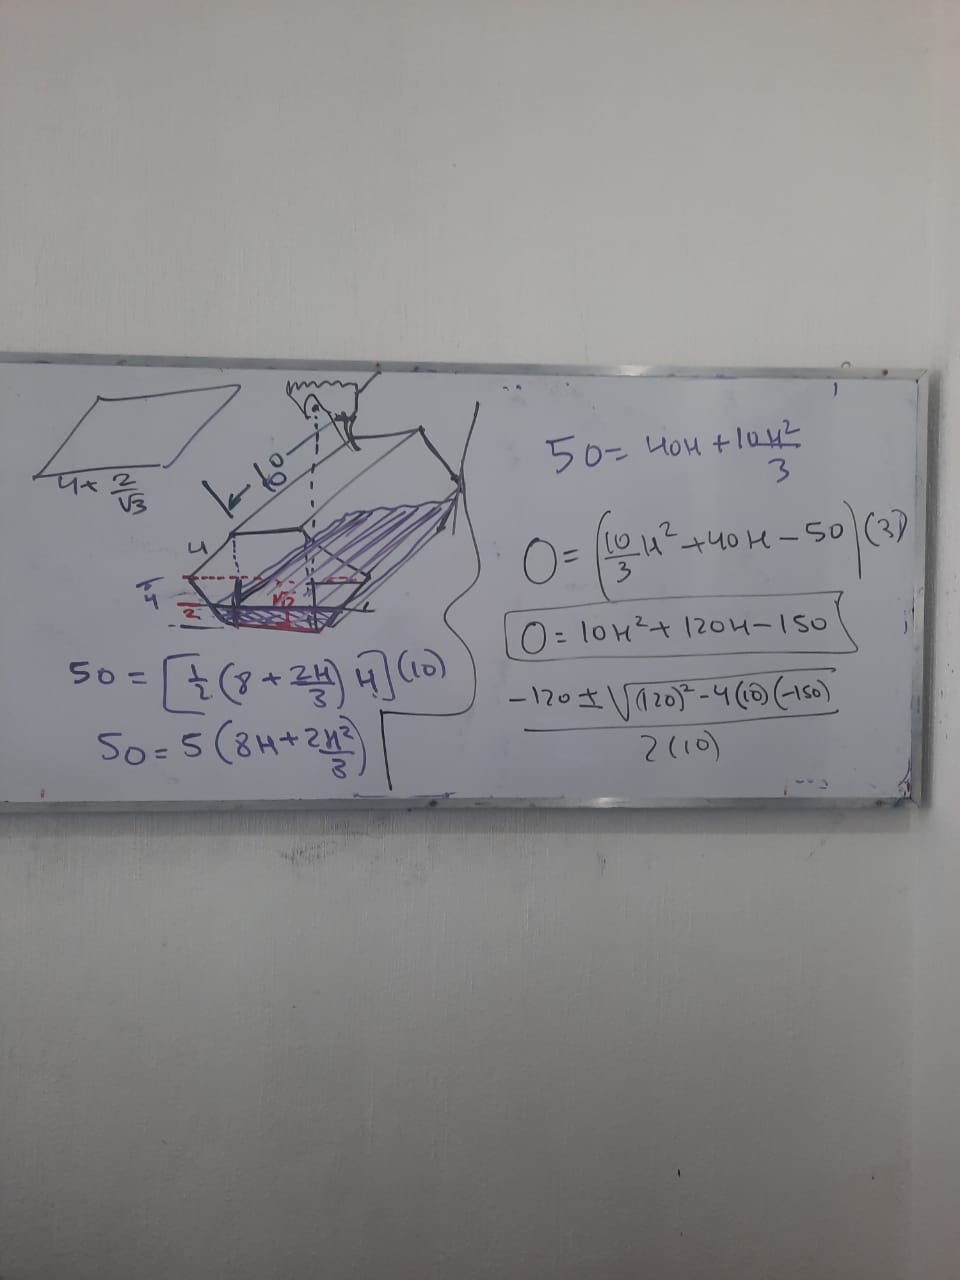 4+ 2/√3
10
4
4
2
√3
50 = [1/2 (8 + 2H/3) H] (10)
50 = 5 (8H + 2H²/3)
50 = 40H + 10H²/3
0 = (10/3 H² + 40H - 50) (3)
0 = 10H² + 120H - 150
-120 ± √(120)² - 4(10)(-150) / 2(10)